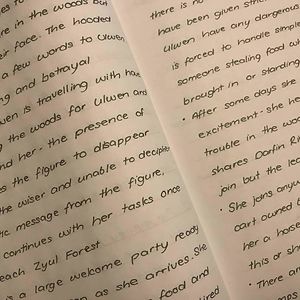 re in the woods but
eir face. The hooded
a few words to Ulwen
ng and betrayal
wen is travelling with
g the woods for Ulwen and
nd her - the presence of
es the figure to disappear
the wiser and unable to decipher
tic message from the figure,
continues with her tasks once
each Zyul Forest
is a large welcome party ready
en as she arrives. She
food and
there is no
have been given stric
Ulwen have any dangerous
is forced to handle simple
someone stealing food
brought in or starting
• After some days she
excitement - she h
trouble in the woo
shares Dorfin Ri
join but the lea
• She joins any
cart owned b
her a horse
this or sh
• There ar